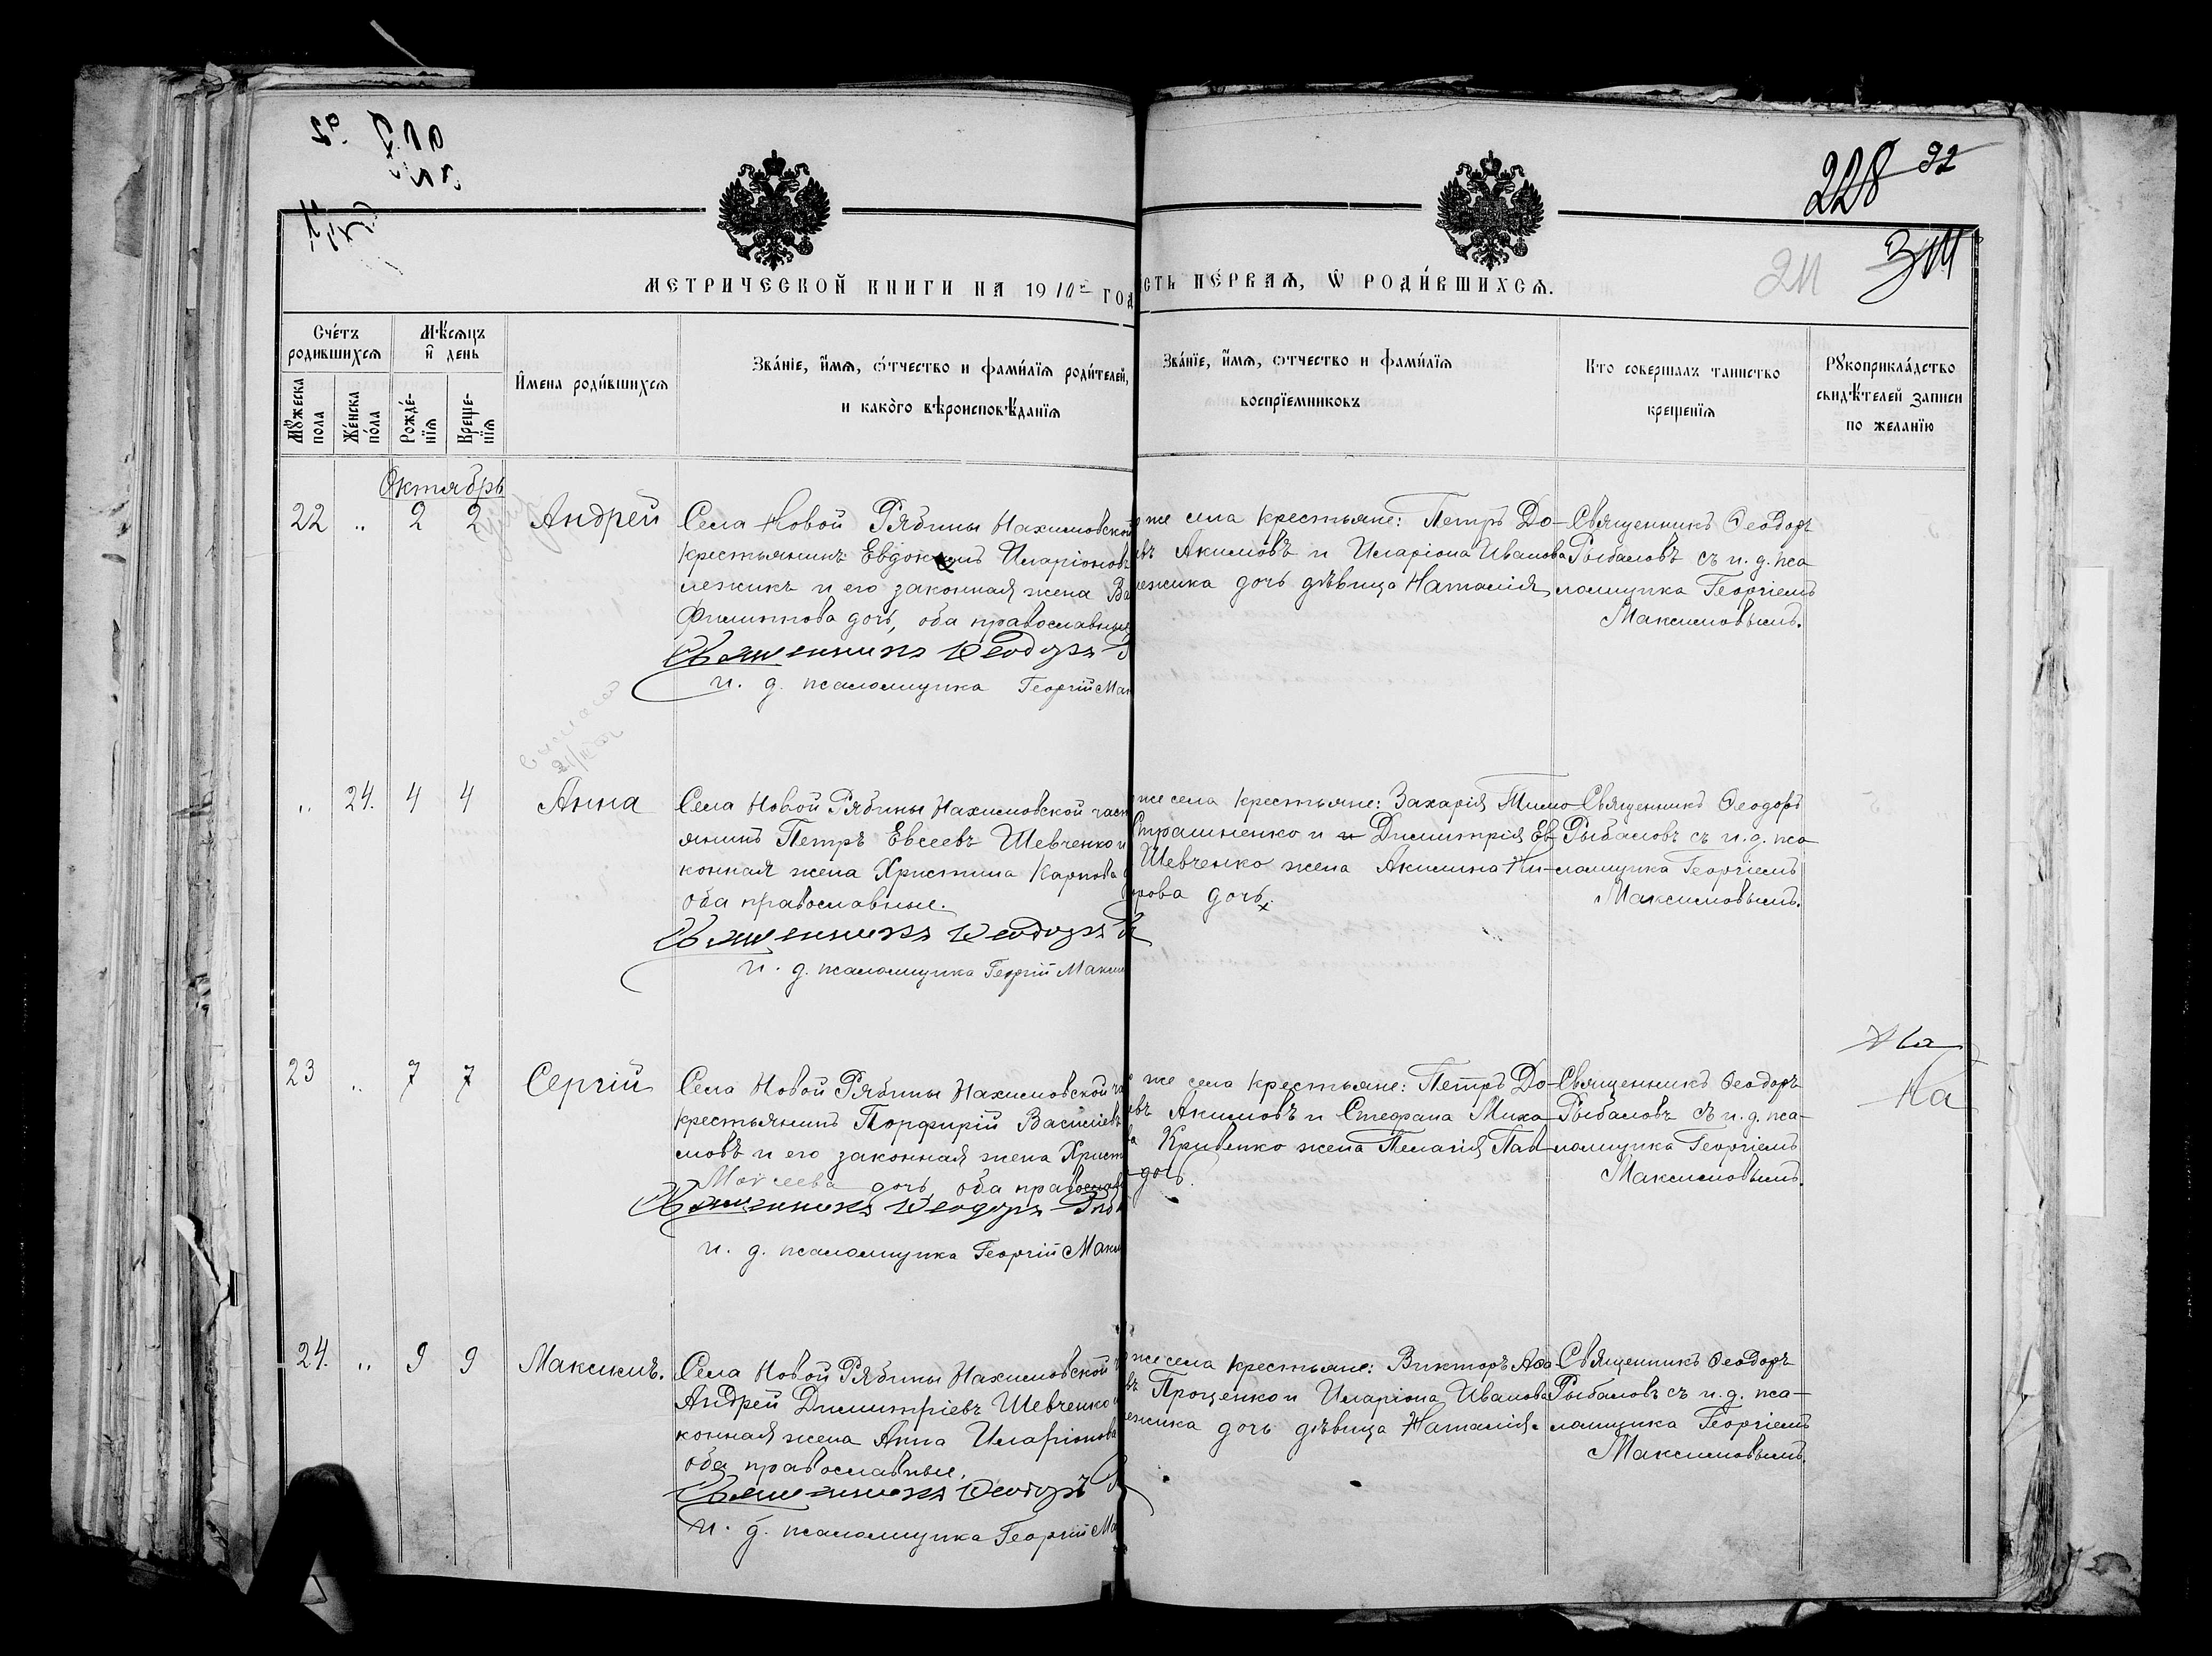 228 92
211
МЕТРИЧЕСКОЙ КНИГИ НА 1910 ГОД
СТЬ ПЕ́РВАѦ, Ѿ РОДИ́ВШИХСѦ.
Сче́тъ родившихсѧ
Мѣ́сѧцъ и҆ день
И҆мена роди́вшихсѧ
Зва́нїе, и҆́мѧ, ѻ҆́тчество и фами́лїѧ роди́телей,
и како́го вѣроисповѣ́данїѧ
Зва́нїе, и҆́мѧ, ѻ҆тчество и фами́лїѧ
воспрїемниковъ
Кто совершалъ таинство
крещенїѧ
Рꙋкоприкла́дство
свидѣ́телей записи
по желанїю
Мꙋжеска пола
Же́нска по́ла
Рожде́-нїѧ
Креще-нїѧ
Октябрь
22 „ 2 2 Андрей
Села Новой Рябины Нахимовской
крестьянинъ Евдокимъ Иларіоновъ
лежикъ и его законная жена Ва
Филиппова дочь, оба православные
Священникъ Ѳеодоръ
и. д. псаломщика Георгій Мак
же села крестьяне: Петръ До-
евъ Акимовъ и Иларіона Иванова
лежика дочь дѣвица Наталія
Священникъ Ѳеодоръ
Рыбаловъ съ и. д. пса
ломщика Георгіемъ
Максимовымъ.
„ 24. 4 4 Анна
Села Новой Рябины Нахимовской част
янинъ Петръ Евсеевъ Шевченко и
конная жена Христина Карпова
оба православные.
Священникъ Ѳеодоръ
и. д. псаломщика Георгій Макси
же села крестьяне: Захарія Тимо
Страшненко и Димитрія Ев
Шевченко жена Акилина Ни-
рова дочь
Священникъ Ѳеодоръ
Рыбаловъ съ и. д. пса
ломщика Георгіемъ
Максимовымъ.
23 „ 7 7 Сергій
Села Новой Рябины Нахимовской ча
крестьянинъ Порфирій Василіевъ
мовъ и его законная жена Христ
Моѵсеева дочь, оба православ
Священникъ Ѳеодоръ Рыб
и. д. псаломщика Георгій Макси
же села крестьяне: Петръ До-
евъ Акимовъ и Стефана Миха
Кривенко жена Пелагія Пав
дочь.
Священникъ Ѳеодоръ
Рыбаловъ съ и. д. пса-
ломщика Георгіемъ
Максимовымъ.
На
24. „ 9 9 Максимъ.
Села Новой Рябины Нахимовской
Андрей Димитріевъ Шевченко
конная жена Анна Иларіонова
оба православные.
Священникъ Ѳеодоръ
и. д. псаломщика Георгій Ма
же села крестьяне: Викторъ Аѳа
Проценко и Иларіона Иванова
лежика дочь дѣвица Наталія.
Священникъ Ѳеодоръ
Рыбаловъ съ и. д. пса-
ломщика Георгіемъ
Максимовымъ.